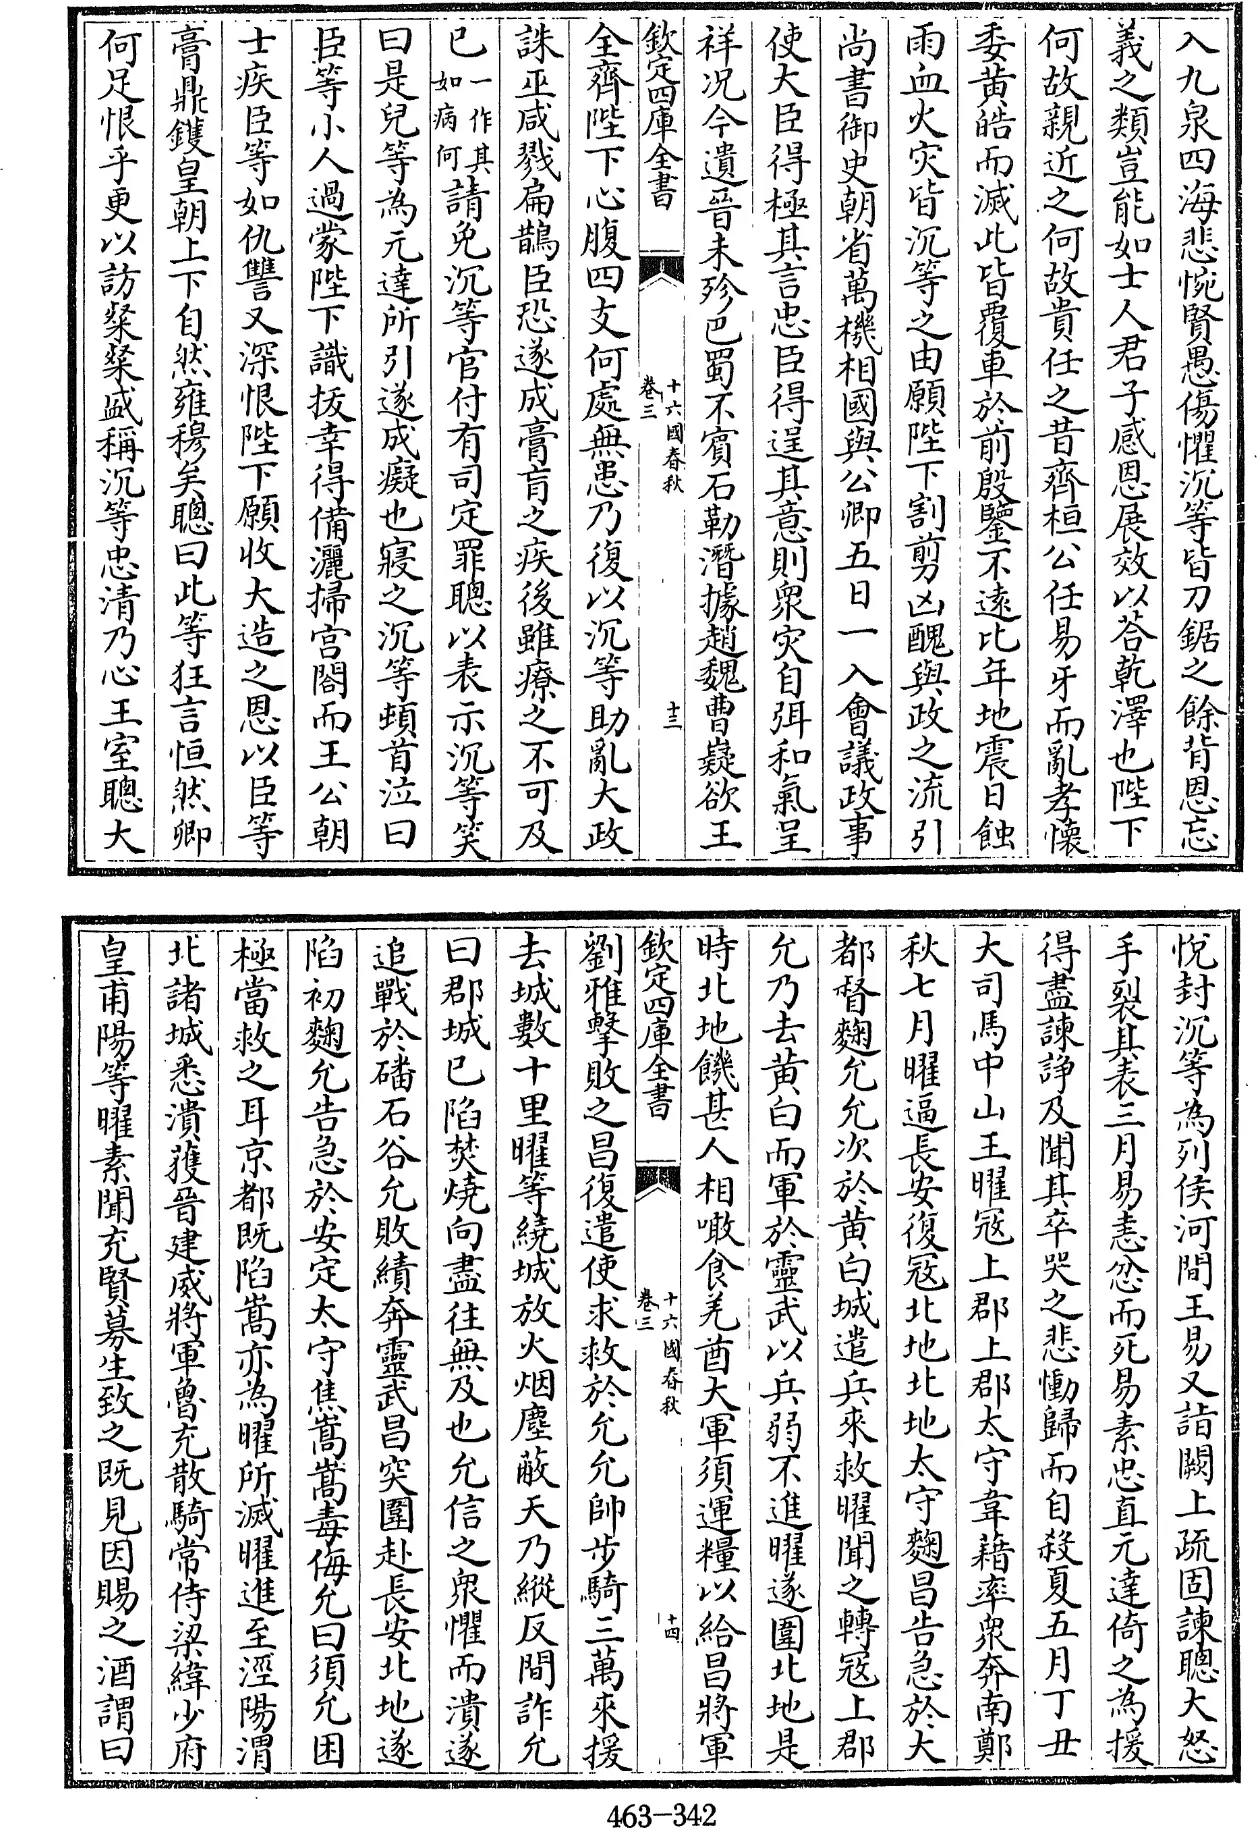 入九泉四海悲惋賢愚傷懼沉等皆刀鋸之餘背恩忘
義之類豈能如士人君子感恩展效以荅乾澤也陛下
何故親近之何故貴任之昔齊桓公任易牙而亂孝懷
委黄皓而滅此皆覆車於前殷鑒不遠比年地震日蝕
雨血火灾皆沉等之由願陛下割剪凶醜與政之流引
尚書御史朝省萬機相國與公卿五日一入會議政事
使大臣得極其言忠臣得逞其意則衆灾自弭和氣呈
祥况今遺晉未殄巴蜀不賓石勒潛據趙魏曹嶷欲王
欽定四庫全書
十六國春秋
卷三
十三
全齊陛下心腹四支何處無患乃復以沉等助亂大政
誅巫咸戮扁鵲臣恐遂成膏肓之疾後雖療之不可及
已一作其如病何請免沉等官付有司定罪聰以表示沉等笑
曰是兒等為元達所引遂成癡也寢之沉等頓首泣曰
臣等小人過蒙陛下識拔幸得備灑掃宫閤而王公朝
士疾臣等如仇讐又深恨陛下願收大造之恩以臣等
膏鼎鑊皇朝上下自然雍穆矣聰曰此等狂言恒然卿
何足恨乎更以訪粲粲盛稱沉等忠清乃心王室聰大
悅封沉等為列侯河間王易又詣闕上疏固諫聰大怒
手裂其表三月易恚忿而死易素忠直元達倚之為援
得盡諫諍及聞其卒哭之悲慟歸而自殺夏五月丁丑
大司馬中山王曜冦上郡上郡太守韋藉率衆奔南鄭
秋七月曜逼長安復冦北地北地太守麴昌告急於大
都督麴允允次於黄白城遣兵來救曜聞之轉冦上郡
允乃去黄白而軍於靈武以兵弱不進曜遂圍北地是
時北地饑甚人相噉食羌酋大軍須運糧以給昌將軍
欽定四庫全書
十六國春秋
卷三
十四
劉雅擊敗之昌復遣使求救於允允帥步騎三萬來援
去城數十里曜等繞城放火烟塵蔽天乃縱反間詐允
曰郡城已陷焚燒向盡往無及也允信之衆懼而潰遂
追戰於磻石谷允敗績奔靈武昌突圍赴長安北地遂
陷初麴允告急於安定太守焦嵩嵩毒侮允曰須允困
極當救之耳京都既陷嵩亦為曜所滅曜進至涇陽渭
北諸城悉潰獲晉建威將軍魯充散騎常侍梁緯少府
皇甫陽等曜素聞充賢募生致之既見因賜之酒謂曰
463-342